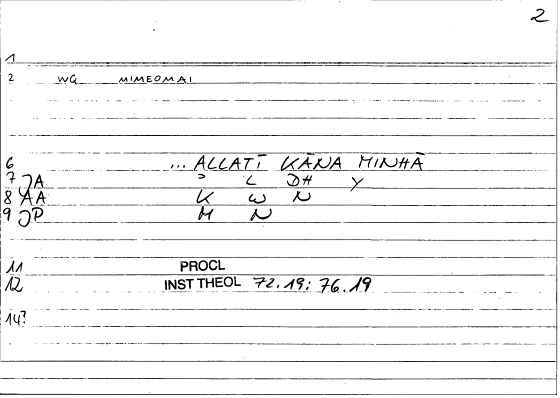 2
1
2 WQ MIMEOMAI
6 ... ALLATĪ KĀNA MINHĀ
7 JA ' L DH Y
8 AA K W N
9 JP M N
11 PROCL
12 INST THEOL 72.19; 76.19
14?